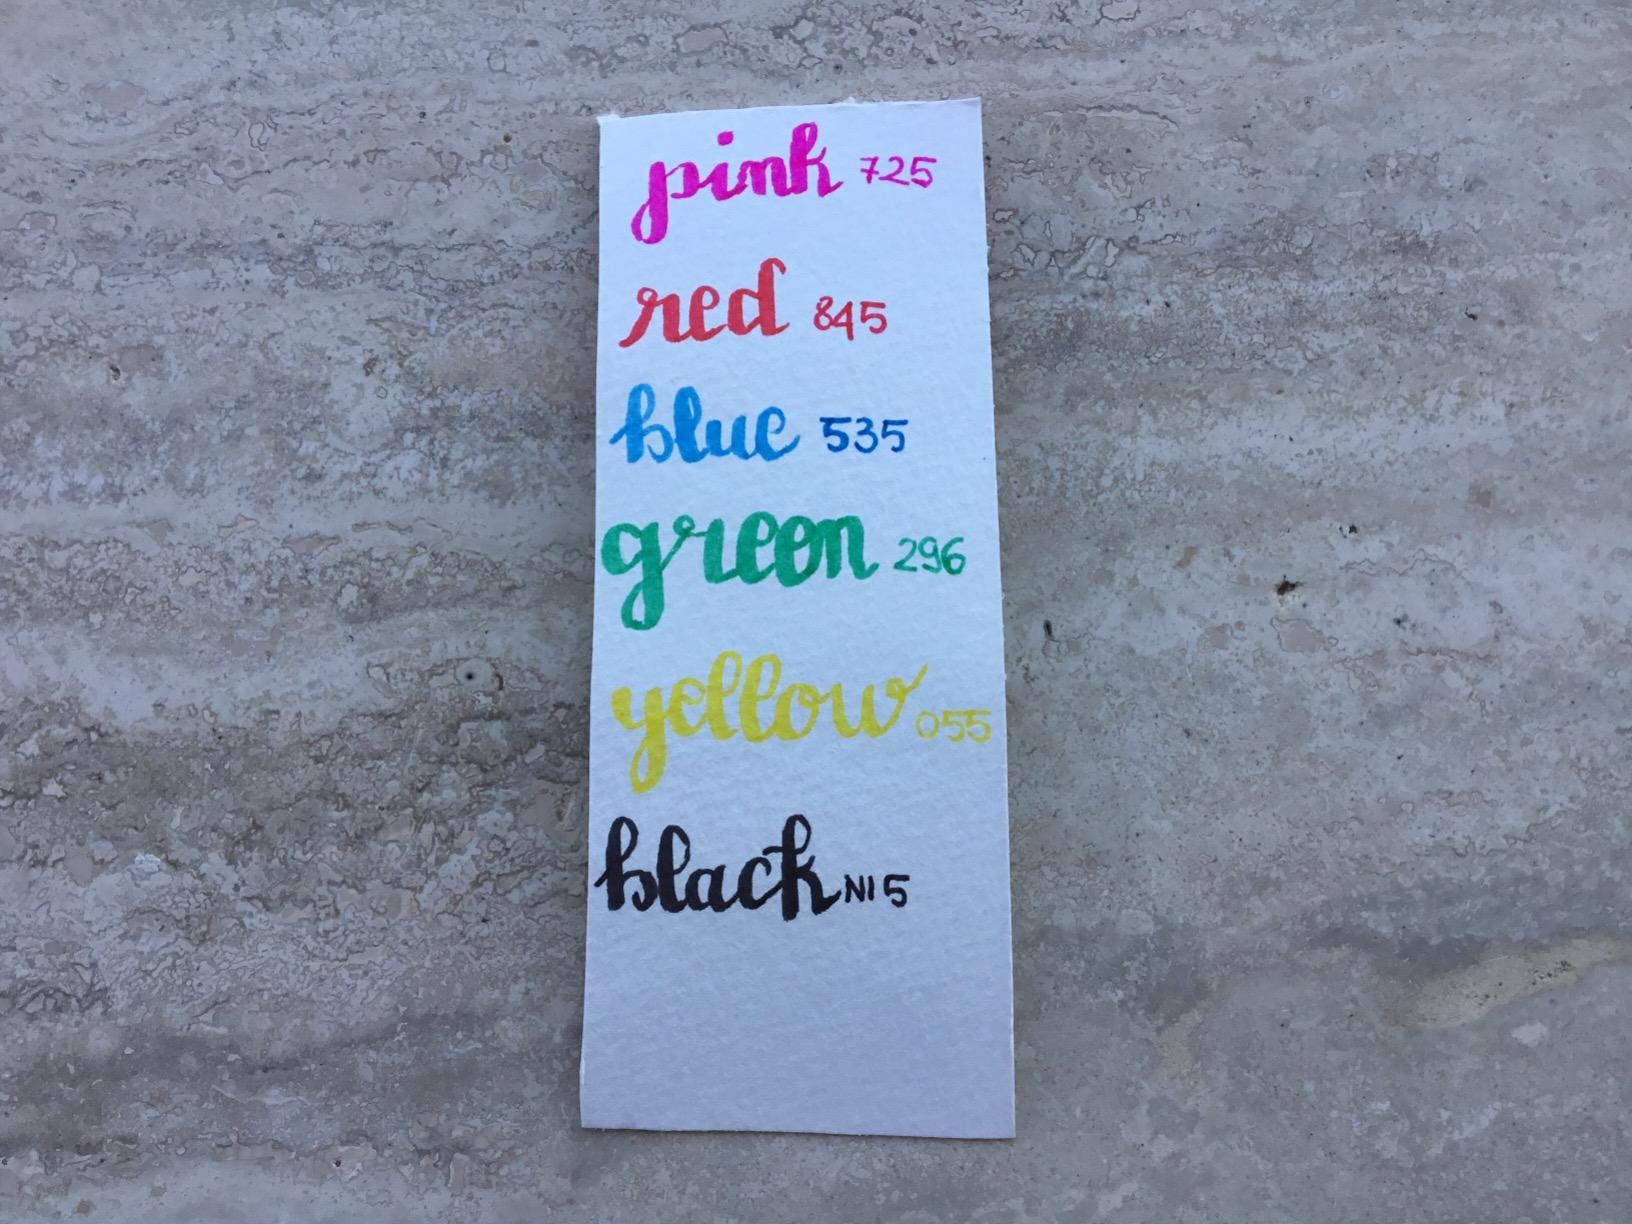 pink 725
red 845
blue 535
green 296
yellow 055
black N15